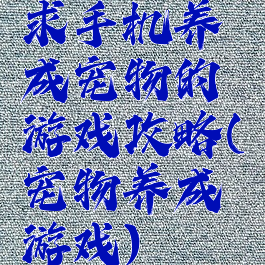 求手机养
成宠物的
游戏攻略(
宠物养成
游戏)